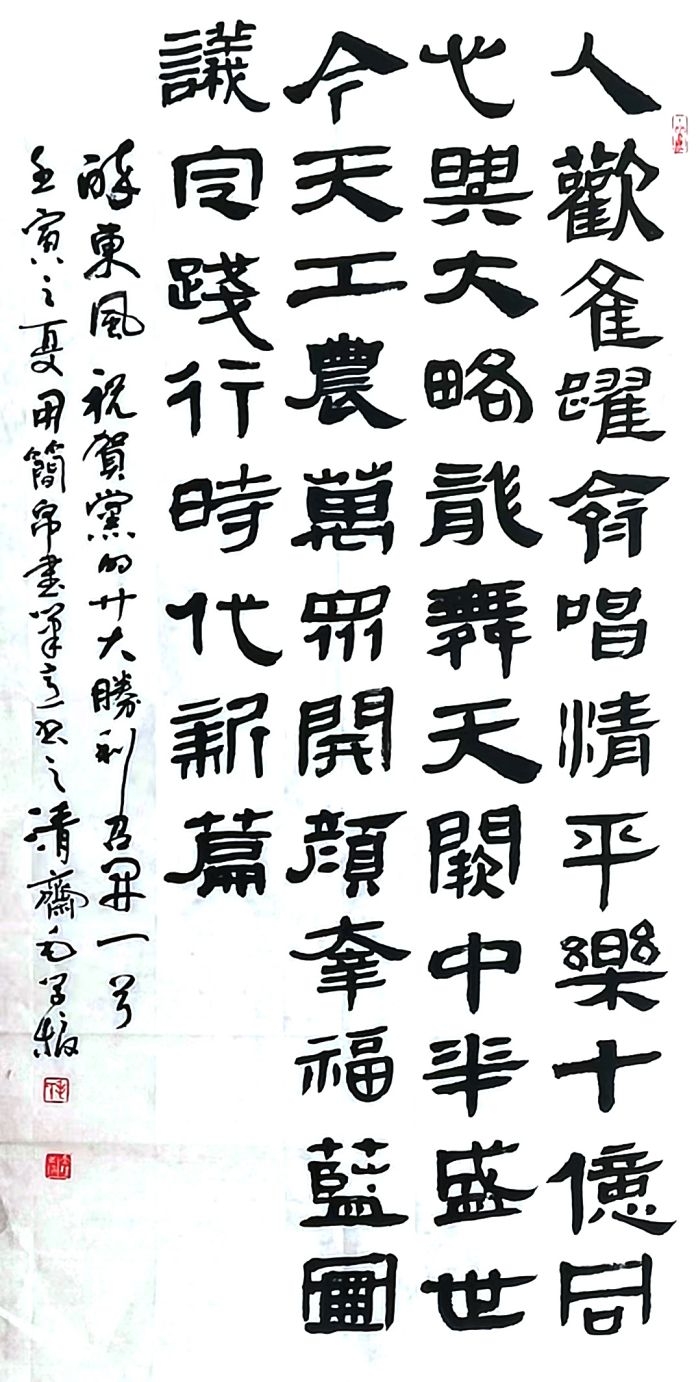 人歡雀躍齊唱情平樂十億同
心興大略龍舞天闕中華盛世
今天工農萬眾開顏幸福藍圖
議定踐行時代新篇
醉東風 祝賀黨的廿大勝利召開一首
壬寅之夏用簡帛書筆意書之清齋